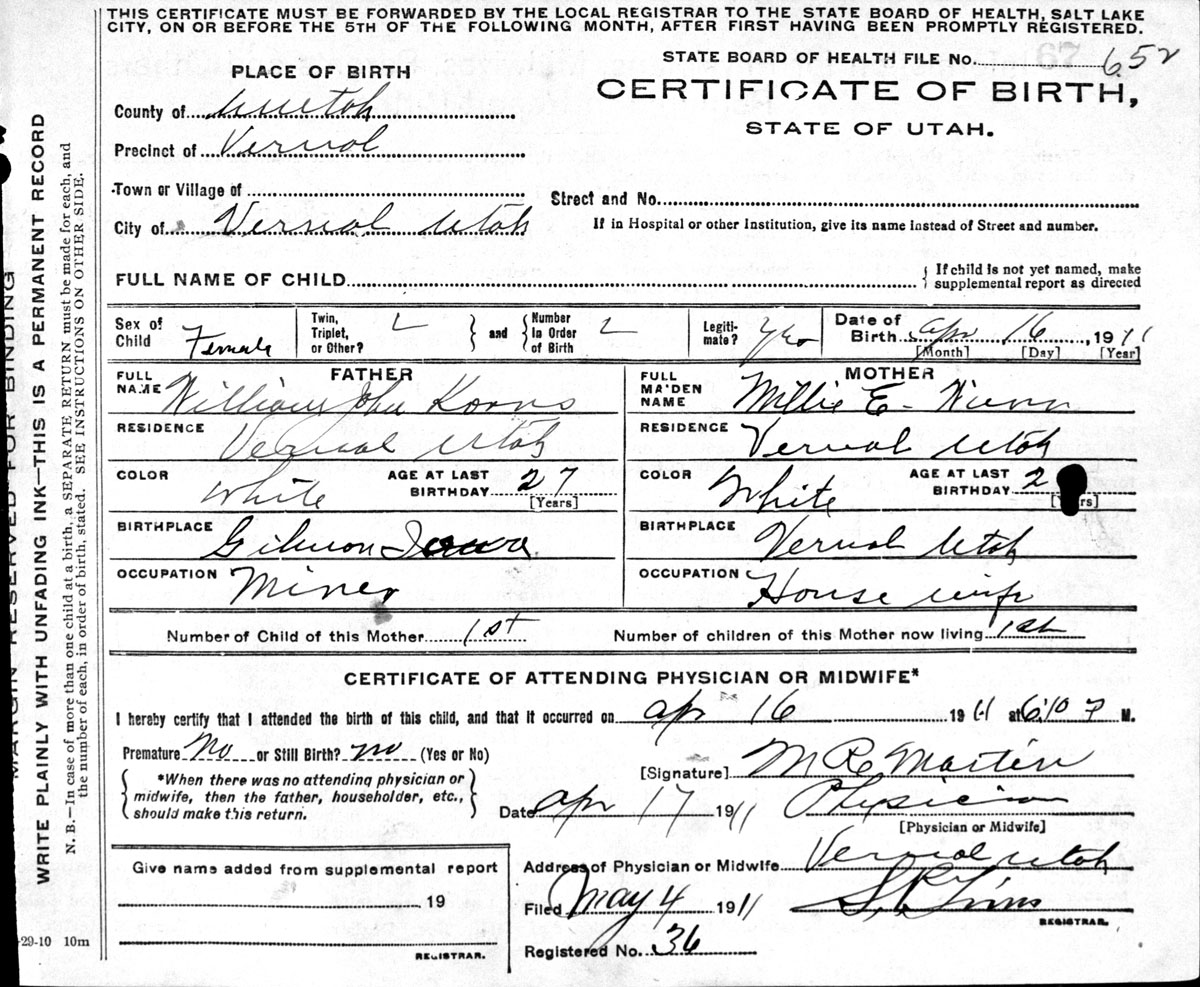 THIS CERTIFICATE MUST BE FORWARDED BY THE LOCAL REGISTRAR TO THE STATE BOARD OF HEALTH, SALT LAKE
CITY, ON OR BEFORE THE 5TH OF THE FOLLOWING MONTH, AFTER FIRST HAVING BEEN PROMPTLY REGISTERED.
STATE BOARD OF HEALTH FILE No. 67 652
PLACE OF BIRTH
CERTIFICATE OF BIRTH,
STATE OF UTAH.
County of
Precinct of Vernal
Town or Village of
Street and No.
City of Vernal Utah
If in Hospital or other Institution, give its name instead of Street and number.
FULL NAME OF CHILD
If child is not yet named, make
supplemental report as directed
Sex of Child Female
Twin, Triplet, or Other?
and
Number In Order of Birth
Legiti- mate? Yes
Date of Birth Apr 16, 1911
[Month] [Day] [Year]
FATHER
FULL NAME William John Korns
RESIDENCE Vernal Utah
COLOR White AGE AT LAST BIRTHDAY 27
[Years]
BIRTHPLACE Gilmon Iowa
OCCUPATION Miner
MOTHER
FULL MAIDEN NAME Millie E
RESIDENCE Vernal Utah
COLOR White AGE AT LAST BIRTHDAY 2
BIRTHPLACE Vernal Utah
OCCUPATION House wife
Number of Child of this Mother 1st
Number of children of this Mother now living 1st
CERTIFICATE OF ATTENDING PHYSICIAN OR MIDWIFE*
I hereby certify that I attended the birth of this child, and that it occurred on Apr 16 1911 at 6:10 P M.
Premature No or Still Birth? no (Yes or No)
*When there was no attending physician or
midwife, then the father, householder, etc.,
should make this return.
[Signature] M R Martin
Date Apr 17 1911 Physician
[Physician or Midwife]
Give name added from supplemental report
19
REGISTRAR.
Address of Physician or Midwife Vernal Utah
Filed May 4 1911
REGISTRAR.
Registered No. 36
-29-10 10m
MARGIN RESERVED FOR BINDING
WRITE PLAINLY WITH UNFADING INK—THIS IS A PERMANENT RECORD
N. B.—In case of more than one child at a birth, a SEPARATE RETURN must be made for each, and
the number of each, in order of birth, stated. SEE INSTRUCTIONS ON OTHER SIDE.